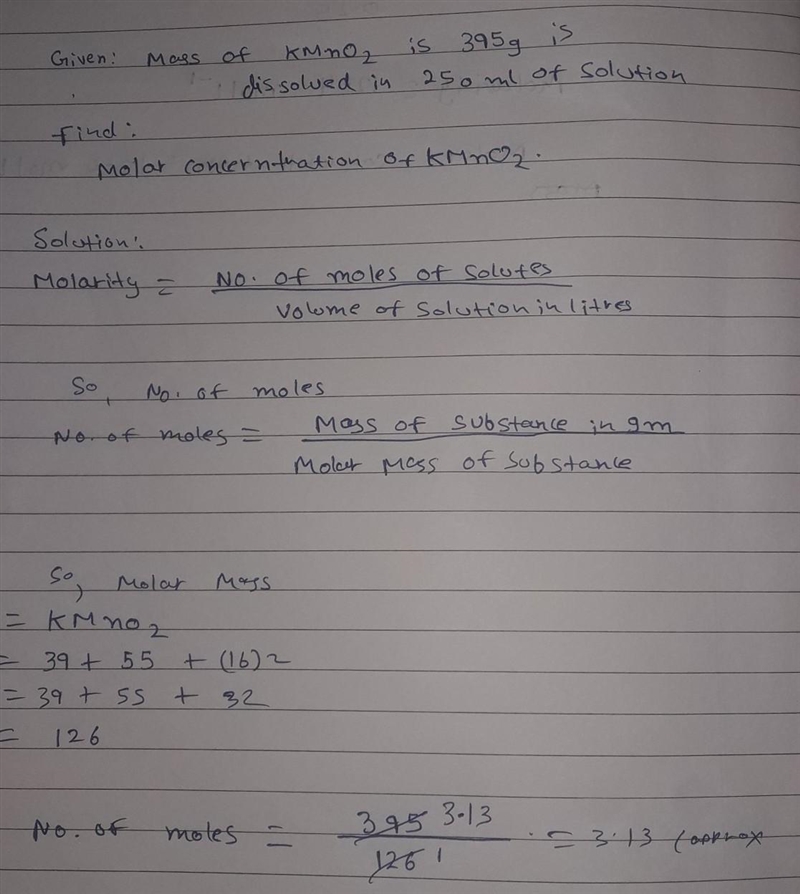 Given: Mass of KMnO2 is 395g is
dissolved in 250 ml of Solution
Find:
Molar concerntration of KMnO2.
Solution:
Molarity = No. of moles of Solutes
Volume of Solution in litres
So, No. of moles
No. of moles = Mass of Substance in gm
Molar Mass of Substance
So, Molar Mass
= KMnO2
= 39 + 55 + (16)2
= 39 + 55 + 32
= 126
No. of moles = 395 3.13 = 3.13 (approx
126 1